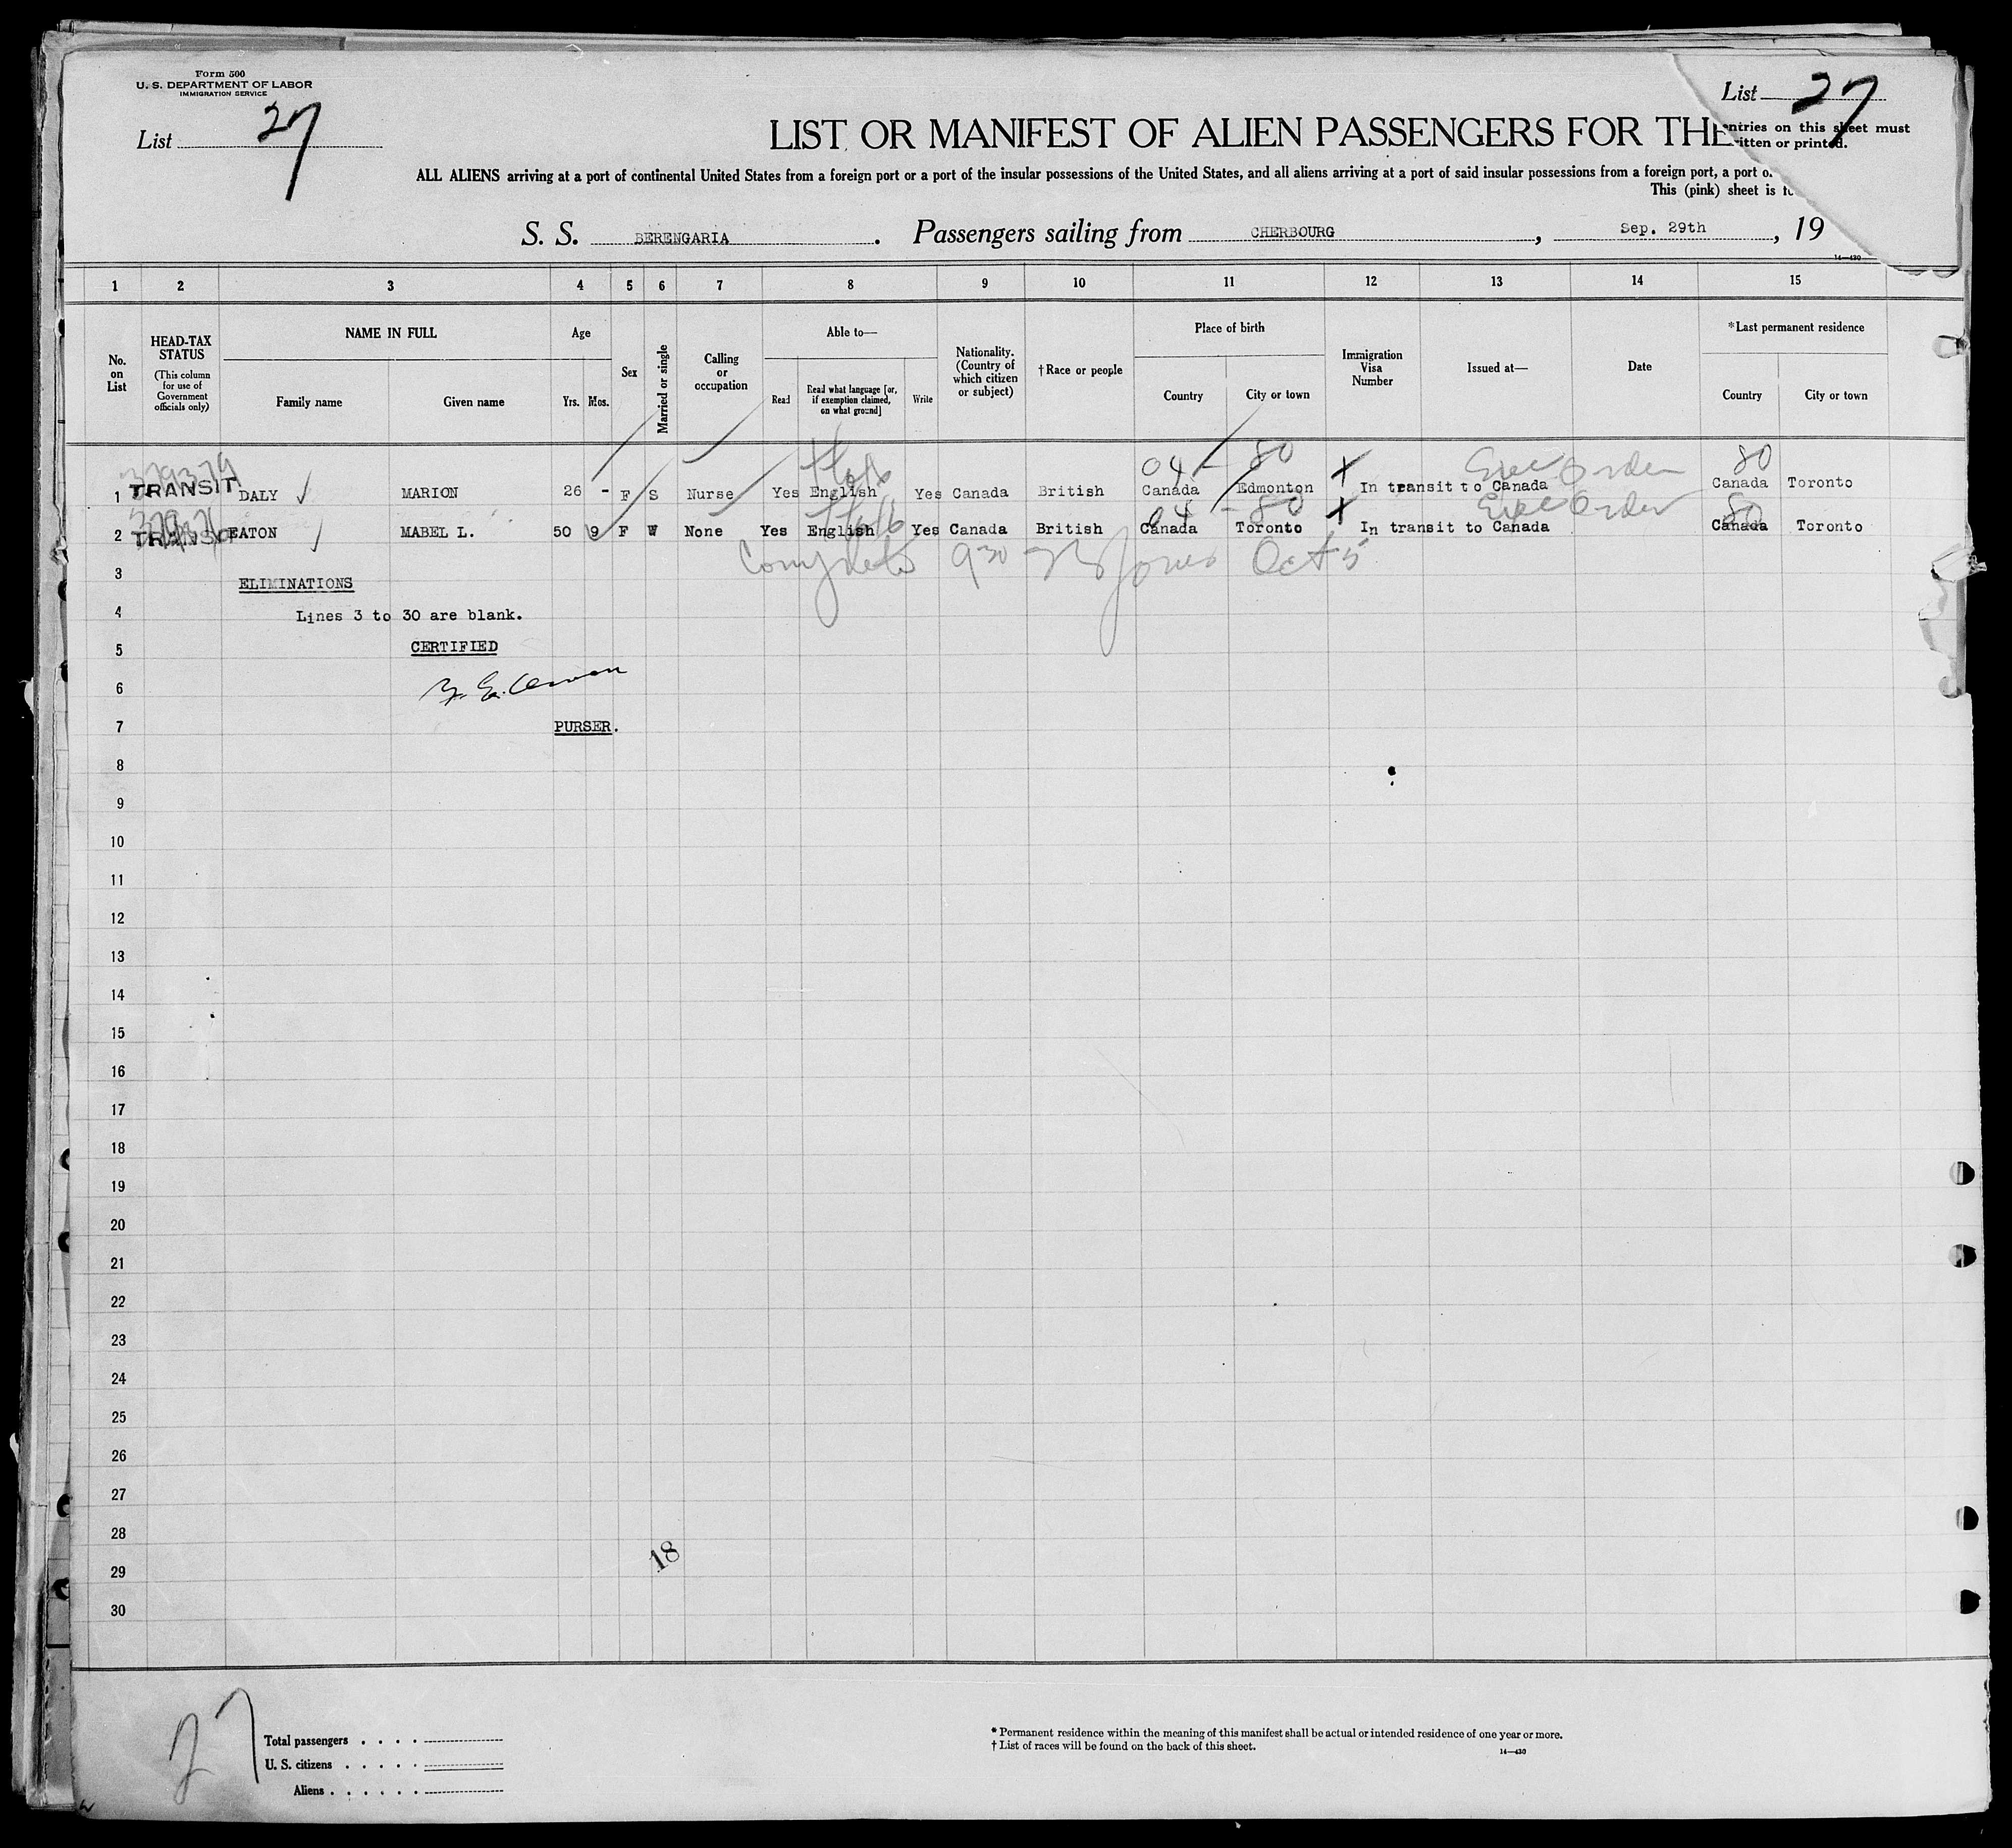 Form 500
U. S. DEPARTMENT OF LABOR
IMMIGRATION SERVICE
List 27
List 27
LIST OR MANIFEST OF ALIEN PASSENGERS FOR THE
entries on this sheet must
itten or printed.
ALL ALIENS arriving at a port of continental United States from a foreign port or a port of the insular possessions of the United States, and all aliens arriving at a port of said insular possessions from a foreign port, a port o
This (pink) sheet is fo
S. S. BERENGARIA. Passengers sailing from CHERBOURG, Sep. 29th, 19
14—430
1 2 3 4 5 6 7 8 9 10 11 12 13 14 15
No. on List
HEAD-TAX STATUS
(This column for use of Government officials only)
NAME IN FULL
Family name Given name
Age
Yrs. Mos.
Sex
Married or single
Calling or occupation
Able to—
Read
Read what language [or, if exemption claimed, on what ground]
Write
Nationality. (Country of which citizen or subject)
†Race or people
Place of birth
Country City or town
Immigration Visa Number
Issued at—
Date
*Last permanent residence
Country City or town
04 - 80 X Exec Order 80
1 TRANSIT DALY MARION 26 - F S Nurse Yes English Yes Canada British Canada Edmonton In transit to Canada Canada Toronto
04 - 80 X Exec Order 80
2 TRANSIT EATON MABEL L. 50 9 F W None Yes English Yes Canada British Canada Toronto In transit to Canada Canada Toronto
Complete 9 30 Jones Oct 5
3 ELIMINATIONS
4 Lines 3 to 30 are blank.
5 CERTIFIED
6
7 PURSER.
8
9
10
11
12
13
14
15
16
17
18
19
20
21
22
23
24
25
26
27
28
18
29
30
27
Total passengers . . . .
U. S. citizens . . . . .
Aliens . . . . . .
* Permanent residence within the meaning of this manifest shall be actual or intended residence of one year or more.
† List of races will be found on the back of this sheet.
14—430